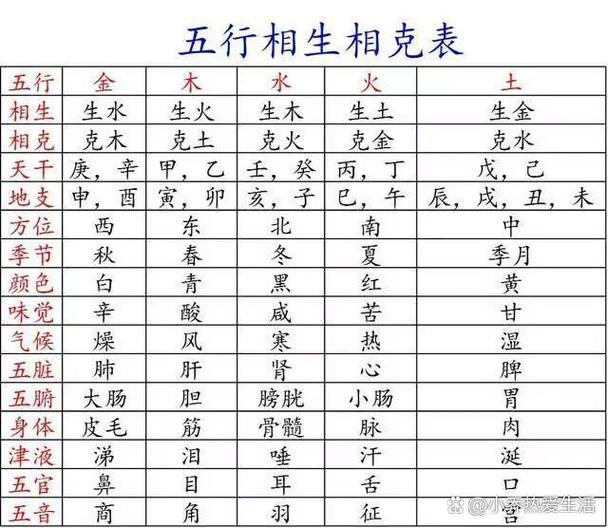 五行相生相克表
五行 金 木 水 火 土
相生 生水 生火 生木 生土 生金
相克 克木 克土 克火 克金 克水
天干 庚，辛 甲，乙 壬，癸 丙，丁 戊，己
地支 申，酉 寅，卯 亥，子 巳，午 辰，戌，丑，未
方位 西 东 北 南 中
季节 秋 春 冬 夏 季月
颜色 白 青 黑 红 黄
味觉 辛 酸 咸 苦 甘
气候 燥 风 寒 热 湿
五脏 肺 肝 肾 心 脾
五腑 大肠 胆 膀胱 小肠 胃
身体 皮毛 筋 骨髓 脉 肉
津液 涕 泪 唾 汗 涎
五官 鼻 目 耳 舌 口
五音 商 角 羽 征 宫
@小乔热爱生活